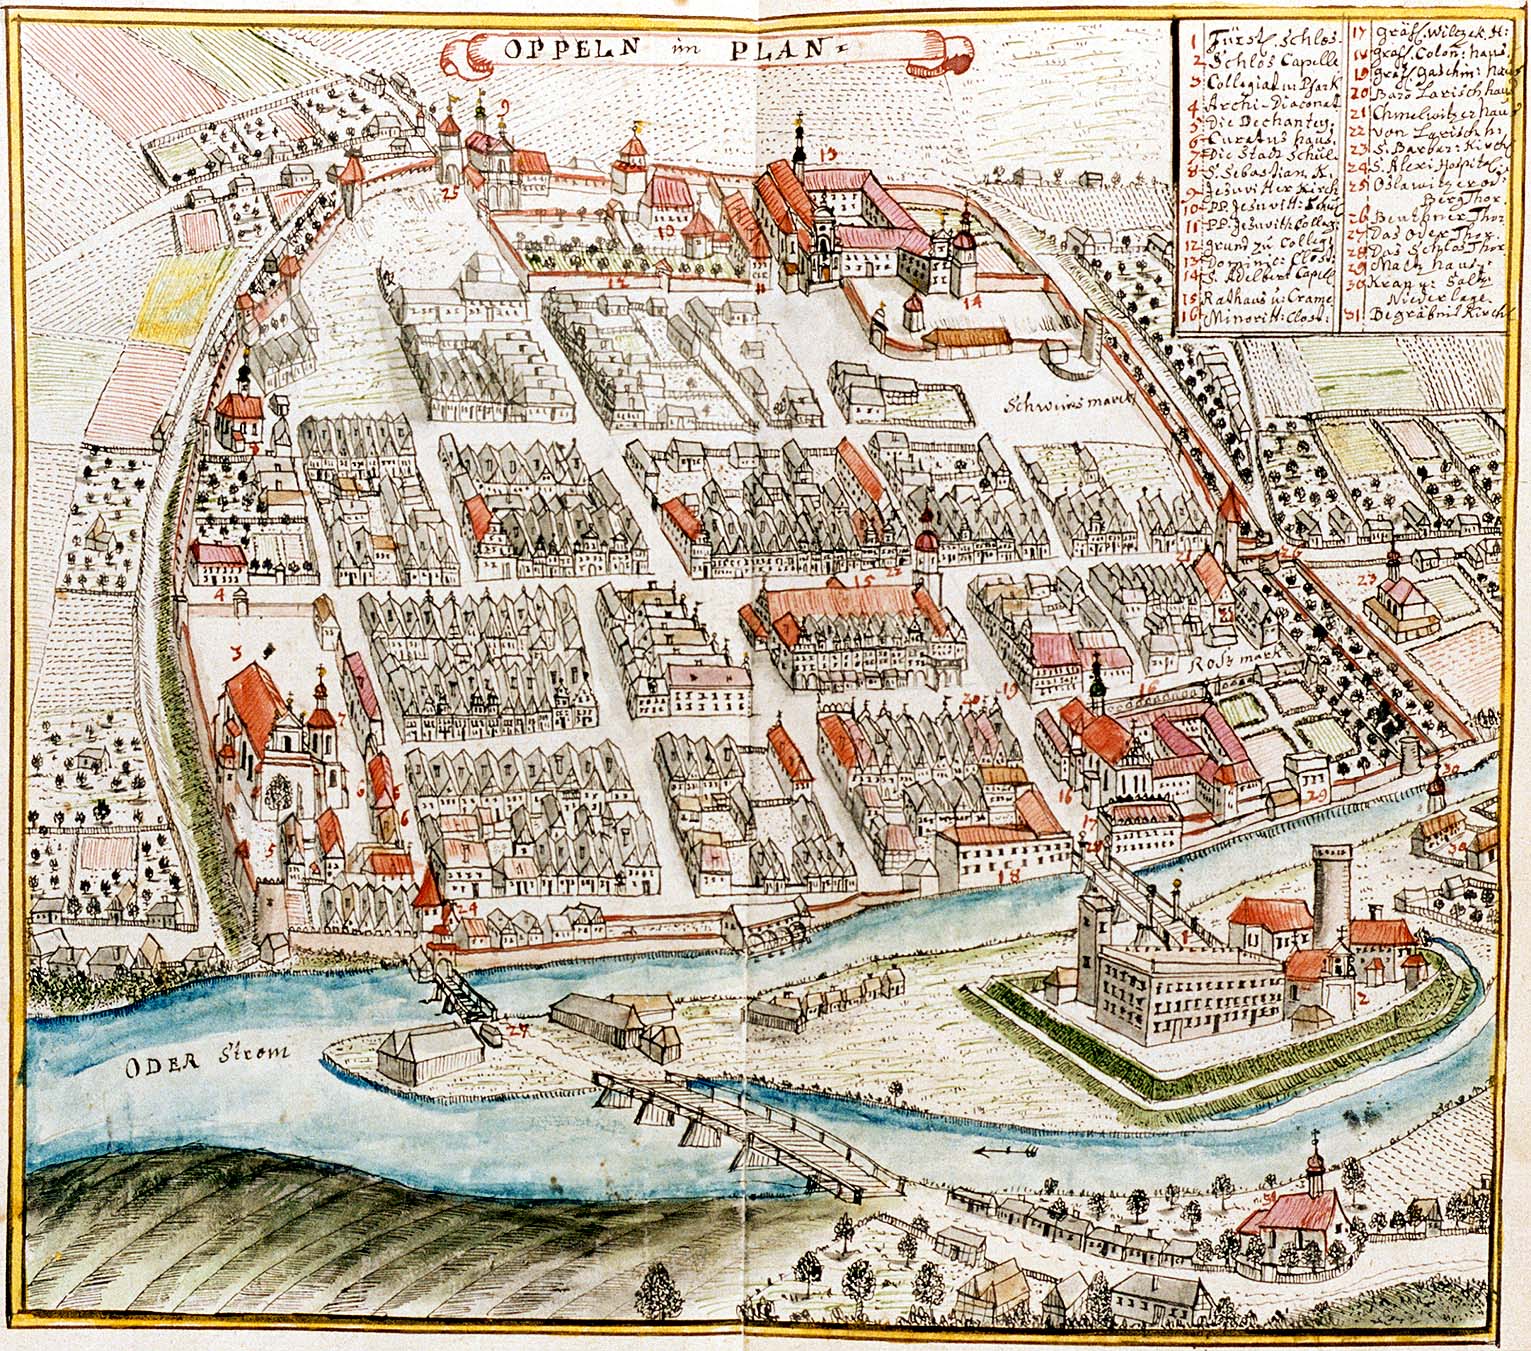 OPPELN im PLAN
1 Fürstl. Schlos.
2 Schlos Capelle
3 Collegiat u Pfark
4 Archi-Diaconat
5 Die Dechantey.
6 Curatus haus.
7 Die Stadt Schul.
8 S. Sebastian K.
9 Jesuvitter Kirch
10 PP. Jesuvitt: Schul
11 PP. Jesuvith Colleg:
12 grund zu Collegi
13 Dominic: Clost:
14 S. Adelbert Capell
15 Rathaus u: Crame
16 Minoritt: Clost:
17 gräfl. Wilczek H:
18 gräfl. Colon: haus.
19 gräfl. gaschin: haus
20 Baro Larisch haus
21 Chmelwitzer haus
22 von Larisch h:
23 S. Barbar: Kirch
24 S. Alexi Hospital:
25 Oslawitzer od:
Berg Thor.
26 Beuthner Thor
27 Das Oder Thor.
28 Das Schlos Thor
29 Maltz haus:
30 Krap u: Saltz
Niederlage
31 Begräbnis Kirch
9
13
25
10
12
11
14
Schweins marck
26
4
15
22
21
23
3
Rosz marck
7
19
20
16
6
5
16
29
30
17
28
18
24
1
2
27
ODER Strom
31